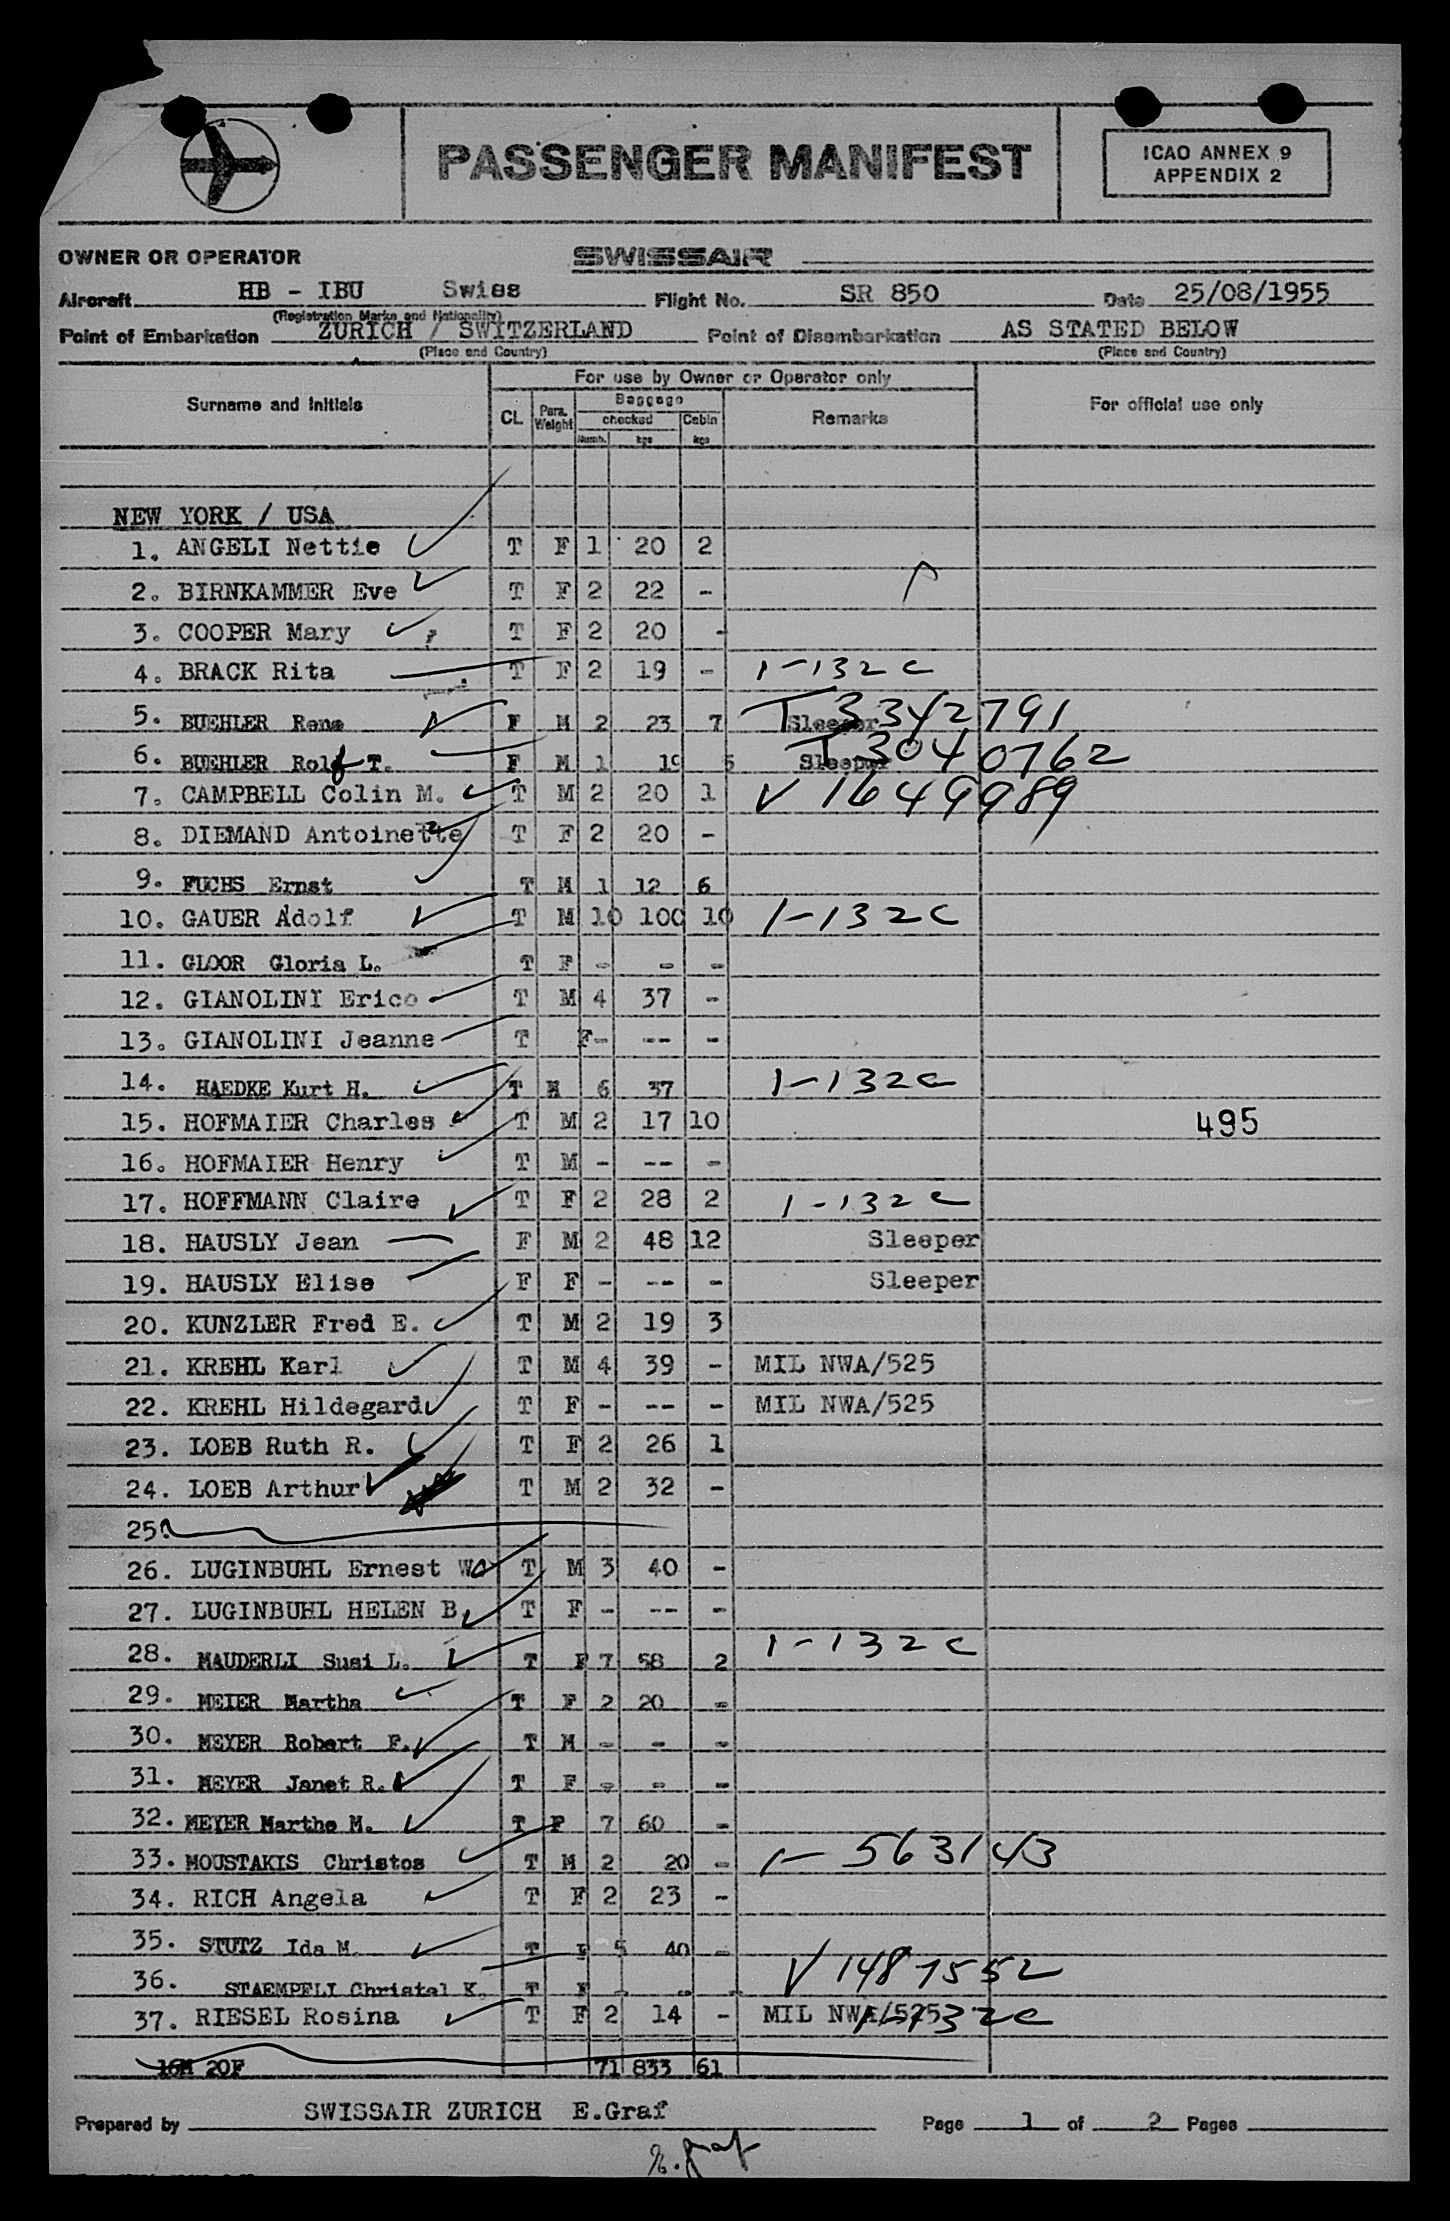 PASSENGER MANIFEST
ICAO ANNEX 9
APPENDIX 2
OWNER OR OPERATOR SWISSAIR
Aircraft HB - IBU Swiss Flight No. SR 850 Date 25/08/1955
(Registration Marks and Nationality)
Point of Embarkation ZURICH / SWITZERLAND Point of Disembarkation AS STATED BELOW
(Place and Country) (Place and Country)
For use by Owner or Operator only
Surname and Initials CL. Pass. Weight Baggage checked Numb. kgs Cabin kgs Remarks For official use only
NEW YORK / USA
1. ANGELI Nettie T F 1 20 2
2. BIRNKAMMER Eve T F 2 22 -
3. COOPER Mary T F 2 20 -
4. BRACK Rita T F 2 19 - 1-132c
5. BUEHLER Rene F M 2 23 7 Sleeper T 3342791
6. BUEHLER Rolf T. F M 1 19 5 Sleeper T 3040762
7. CAMPBELL Colin M. T M 2 20 1 V 1649989
8. DIEMAND Antoinette T F 2 20 -
9. FUCHS Ernst T M 1 12 6
10. GAUER Adolf T M 10 100 10 1-132c
11. GLOOR Gloria L. T F - - -
12. GIANOLINI Erico T M 4 37 -
13. GIANOLINI Jeanne T F - -- -
14. HAEDKE Kurt H. T M 6 37 1-132c
15. HOFMAIER Charles T M 2 17 10 495
16. HOFMAIER Henry T M - -- -
17. HOFFMANN Claire T F 2 28 2 1-132c
18. HAUSLY Jean F M 2 48 12 Sleeper
19. HAUSLY Elise F F - -- - Sleeper
20. KUNZLER Fred E. T M 2 19 3
21. KREHL Karl T M 4 39 - MIL NWA/525
22. KREHL Hildegard T F - -- - MIL NWA/525
23. LOEB Ruth R. T F 2 26 1
24. LOEB Arthur T M 2 32 -
25.
26. LUGINBUHL Ernest W. T M 3 40 -
27. LUGINBUHL HELEN B. T F - -- -
28. MAUDERLI Susi L. T F 7 58 2 1-132c
29. MEIER Martha T F 2 20 -
30. MEYER Robert F. T M - - -
31. MEYER Janet R. T F - - -
32. MEYER Marthe M. T F 7 60 -
33. MOUSTAKIS Christos T M 2 20 - 1-563143
34. RICH Angela T F 2 23 -
35. STUTZ Ida M. T F 5 40 -
36. STAEMPFLI Christel K. T F - - - V 1481552
37. RIESEL Rosina T F 2 14 - MIL NWA/525 1-132c
16M 20F 71 833 61
Prepared by SWISSAIR ZURICH E.Graf Page 1 of 2 Pages
E. Graf